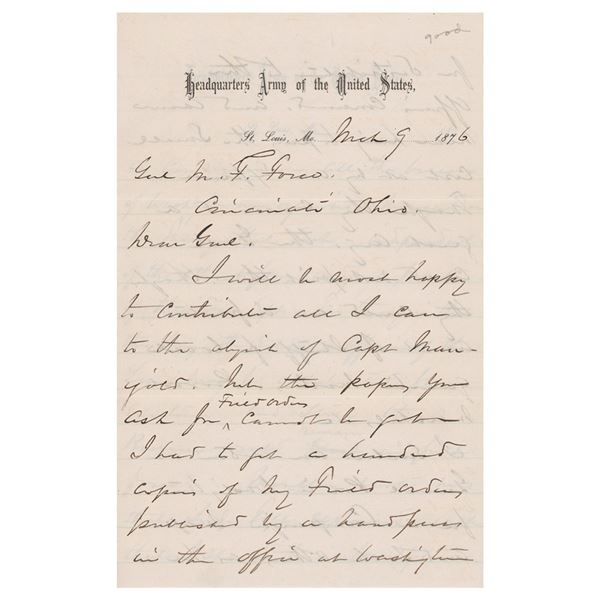 good
Headquarters Army of the United States,
St. Louis, Mo. Mch 9 1876
Genl M. F. Force.
Cincinnati Ohio.
Dear Genl.
I will be most happy
to contribute all I can
to the object of Capt Man-
gold. But the papers you
Field orders
ask for, cannot be gotten
I had to get a hundred
copies of my Field orders
published by a hand press
in the office at Washington